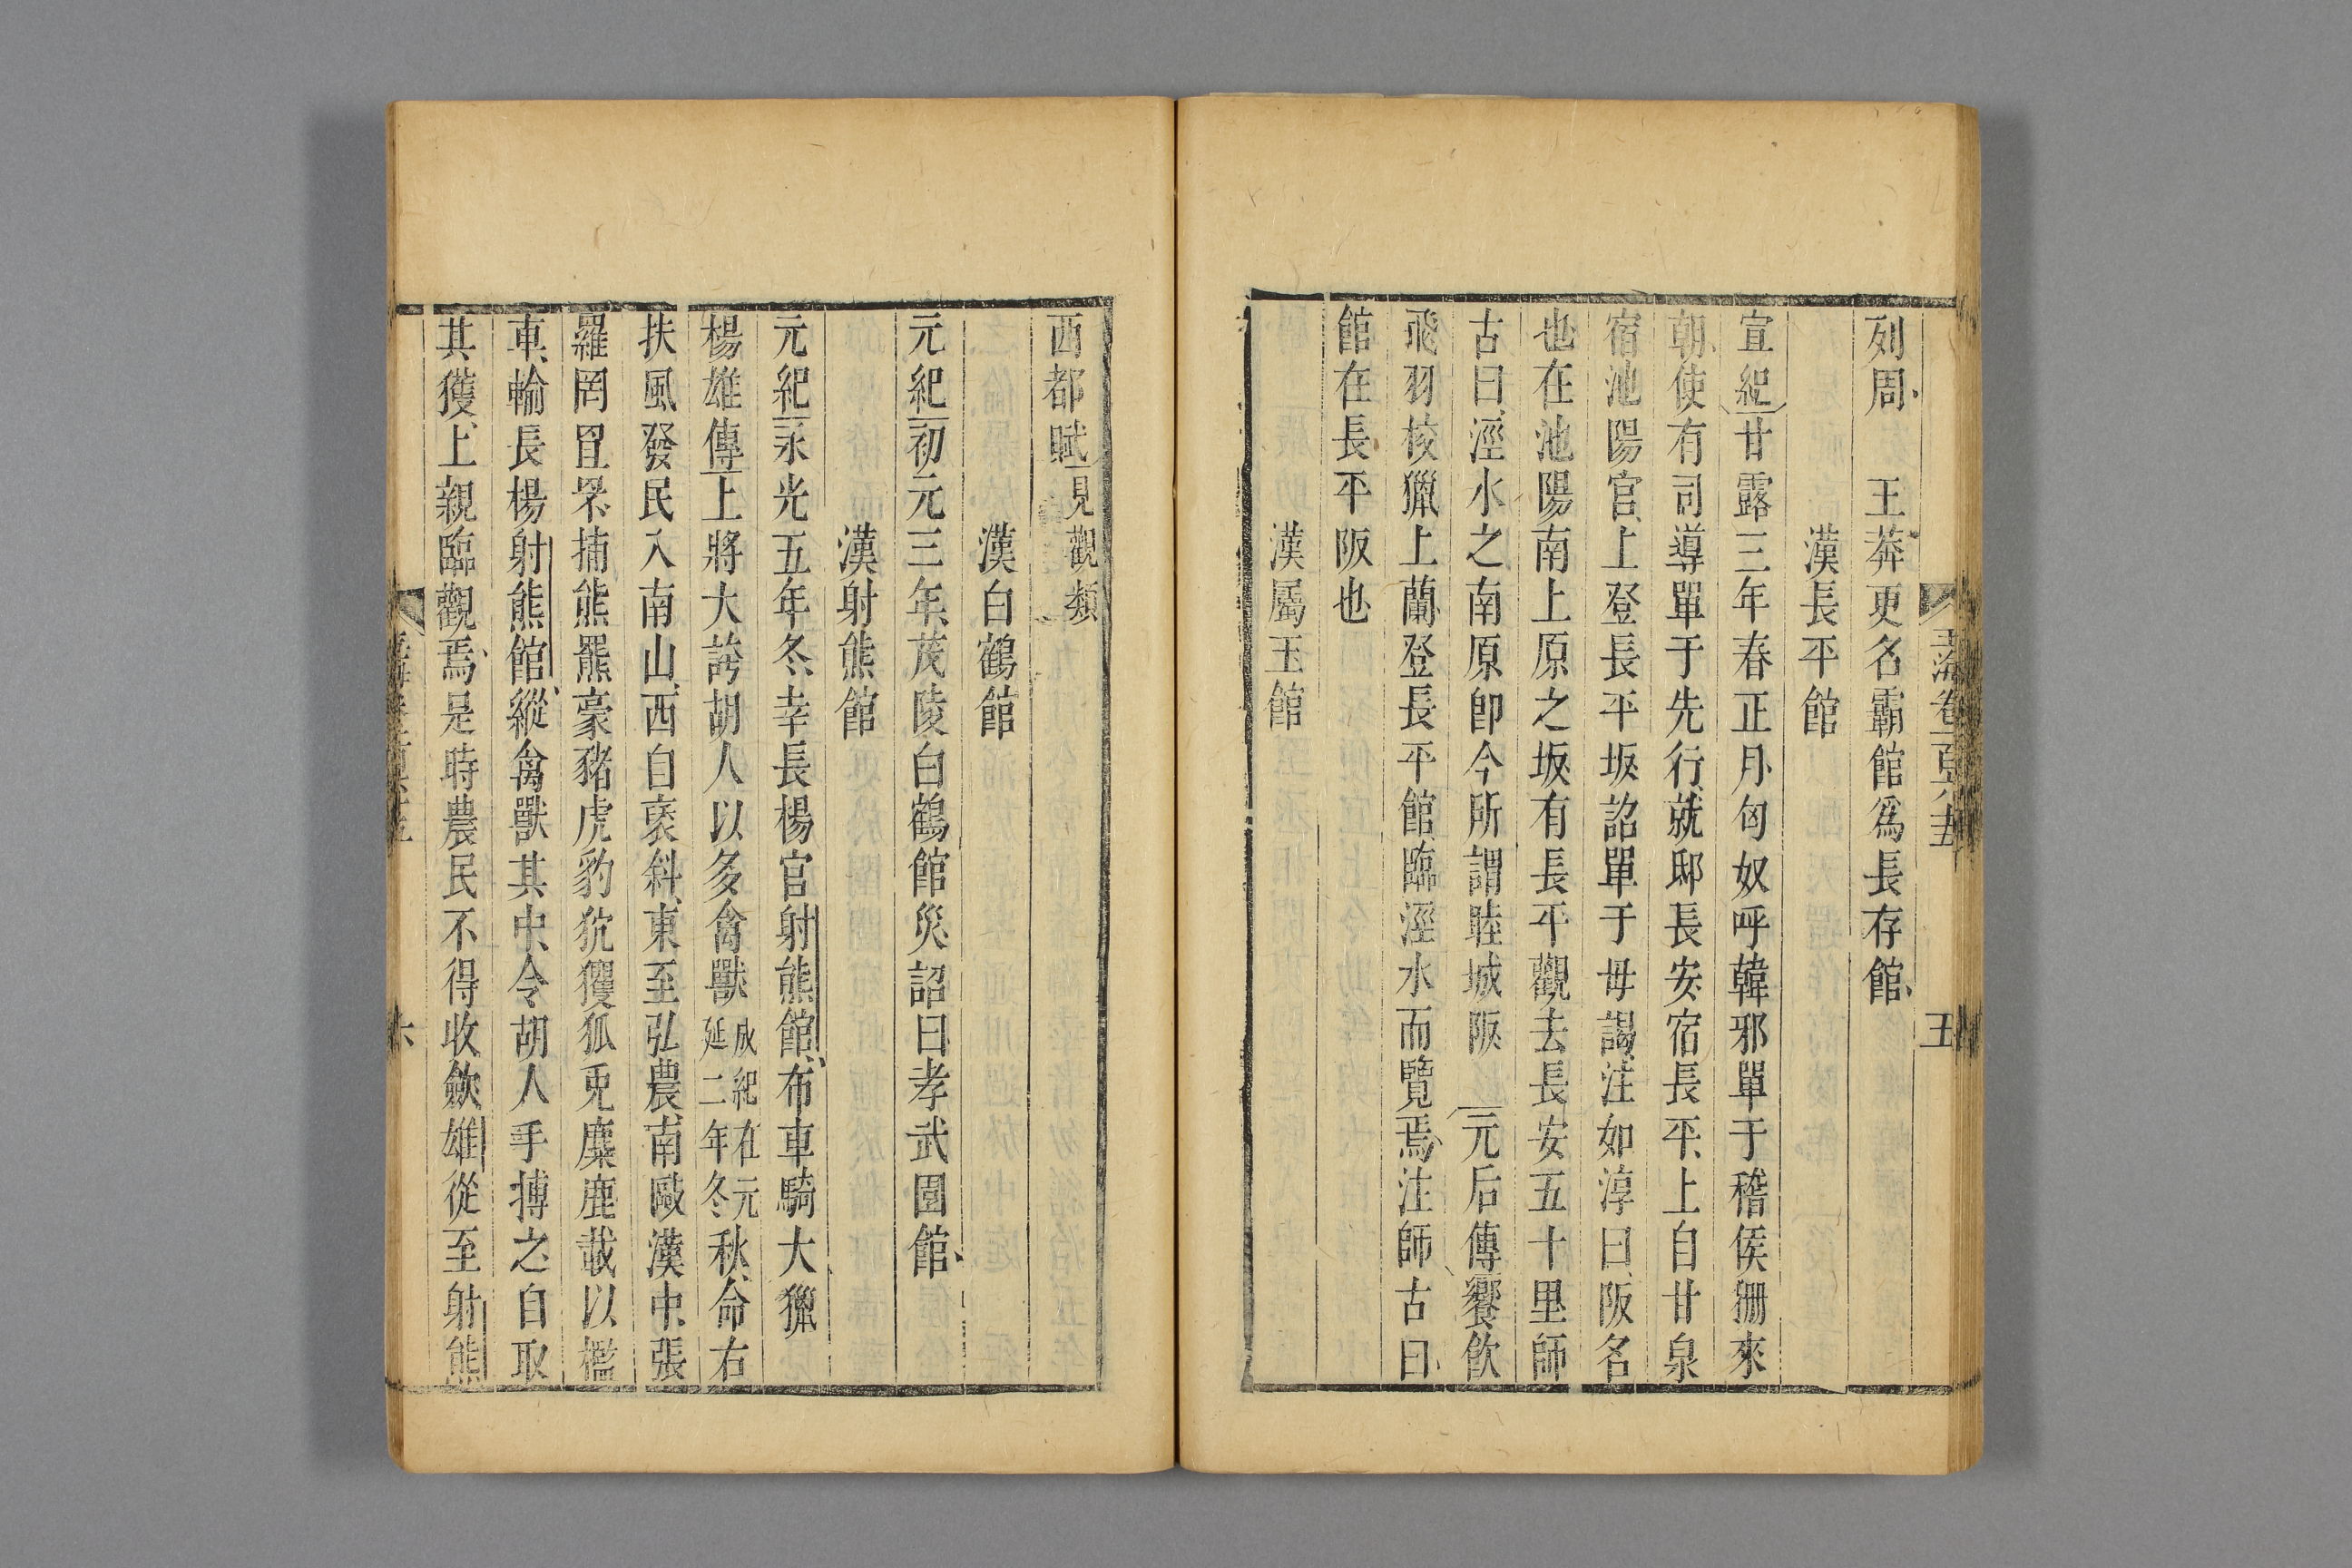 玉海卷一百六十五
五
列周　王莽更名霸館爲長存館
漢長平館
宣紀甘露三年春正月匈奴呼韓邪單于稽侯狦來
朝使有司導單于先行就邸長安宿長平上自甘泉
宿池陽宮上登長平坂詔單于毋謁注如淳曰阪名
也在池陽南上原之坂有長平觀去長安五十里師
古曰涇水之南原卽今所謂眭城阪　元后傳饗飲
飛羽校獵上蘭登長平館臨涇水而覽焉注師古曰
館在長平阪也
漢屬玉館
西都賦見觀類
漢白鶴館
元紀初元三年茂陵白鶴館災詔曰孝武園館
漢射熊館
元紀永光五年冬幸長楊宮射熊館布車騎大獵
楊雄傳上將大誇胡人以多禽獸成紀在元延二年冬秋命右
扶風發民入南山西自褒斜東至弘農南敺漢中張
羅罔罝罘捕熊羆豪豬虎豹狖玃狐兎麋鹿載以檻
車輸長楊射熊館縱禽獸其中令胡人手搏之自取
其獲上親臨觀焉是時農民不得收斂雄從至射熊
六